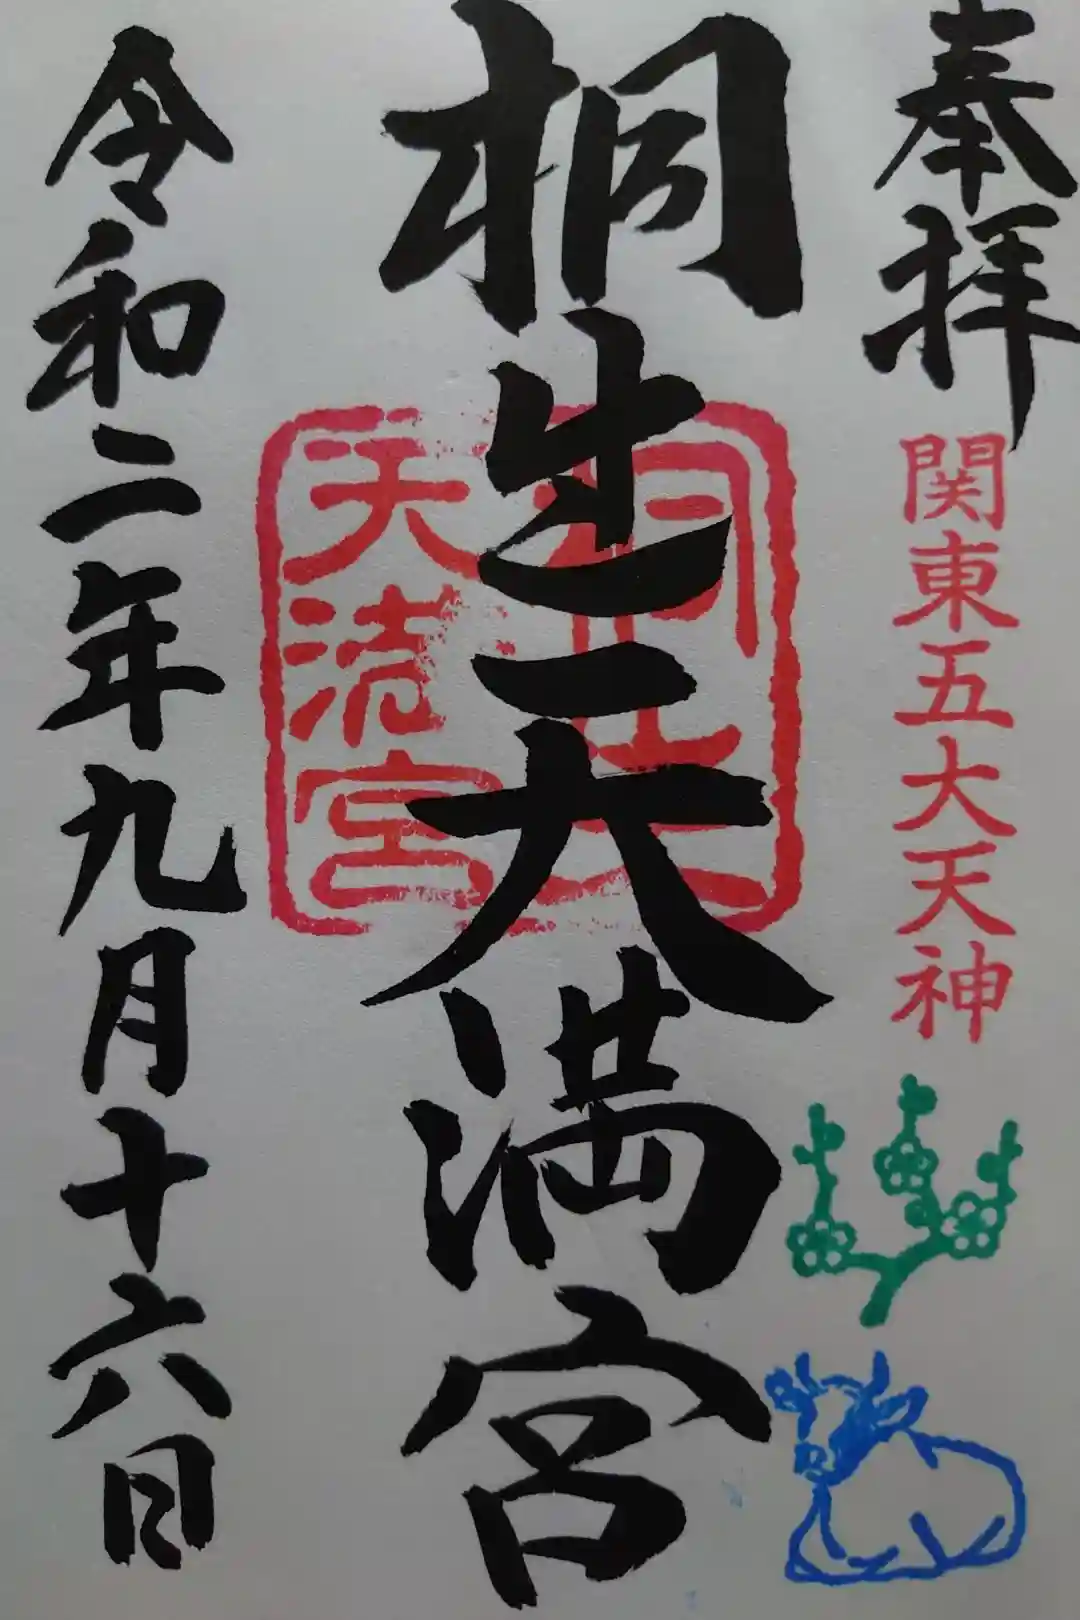 奉拝
関東五大天神
桐生天満宮
桐生
天満宮
令和二年九月十六日